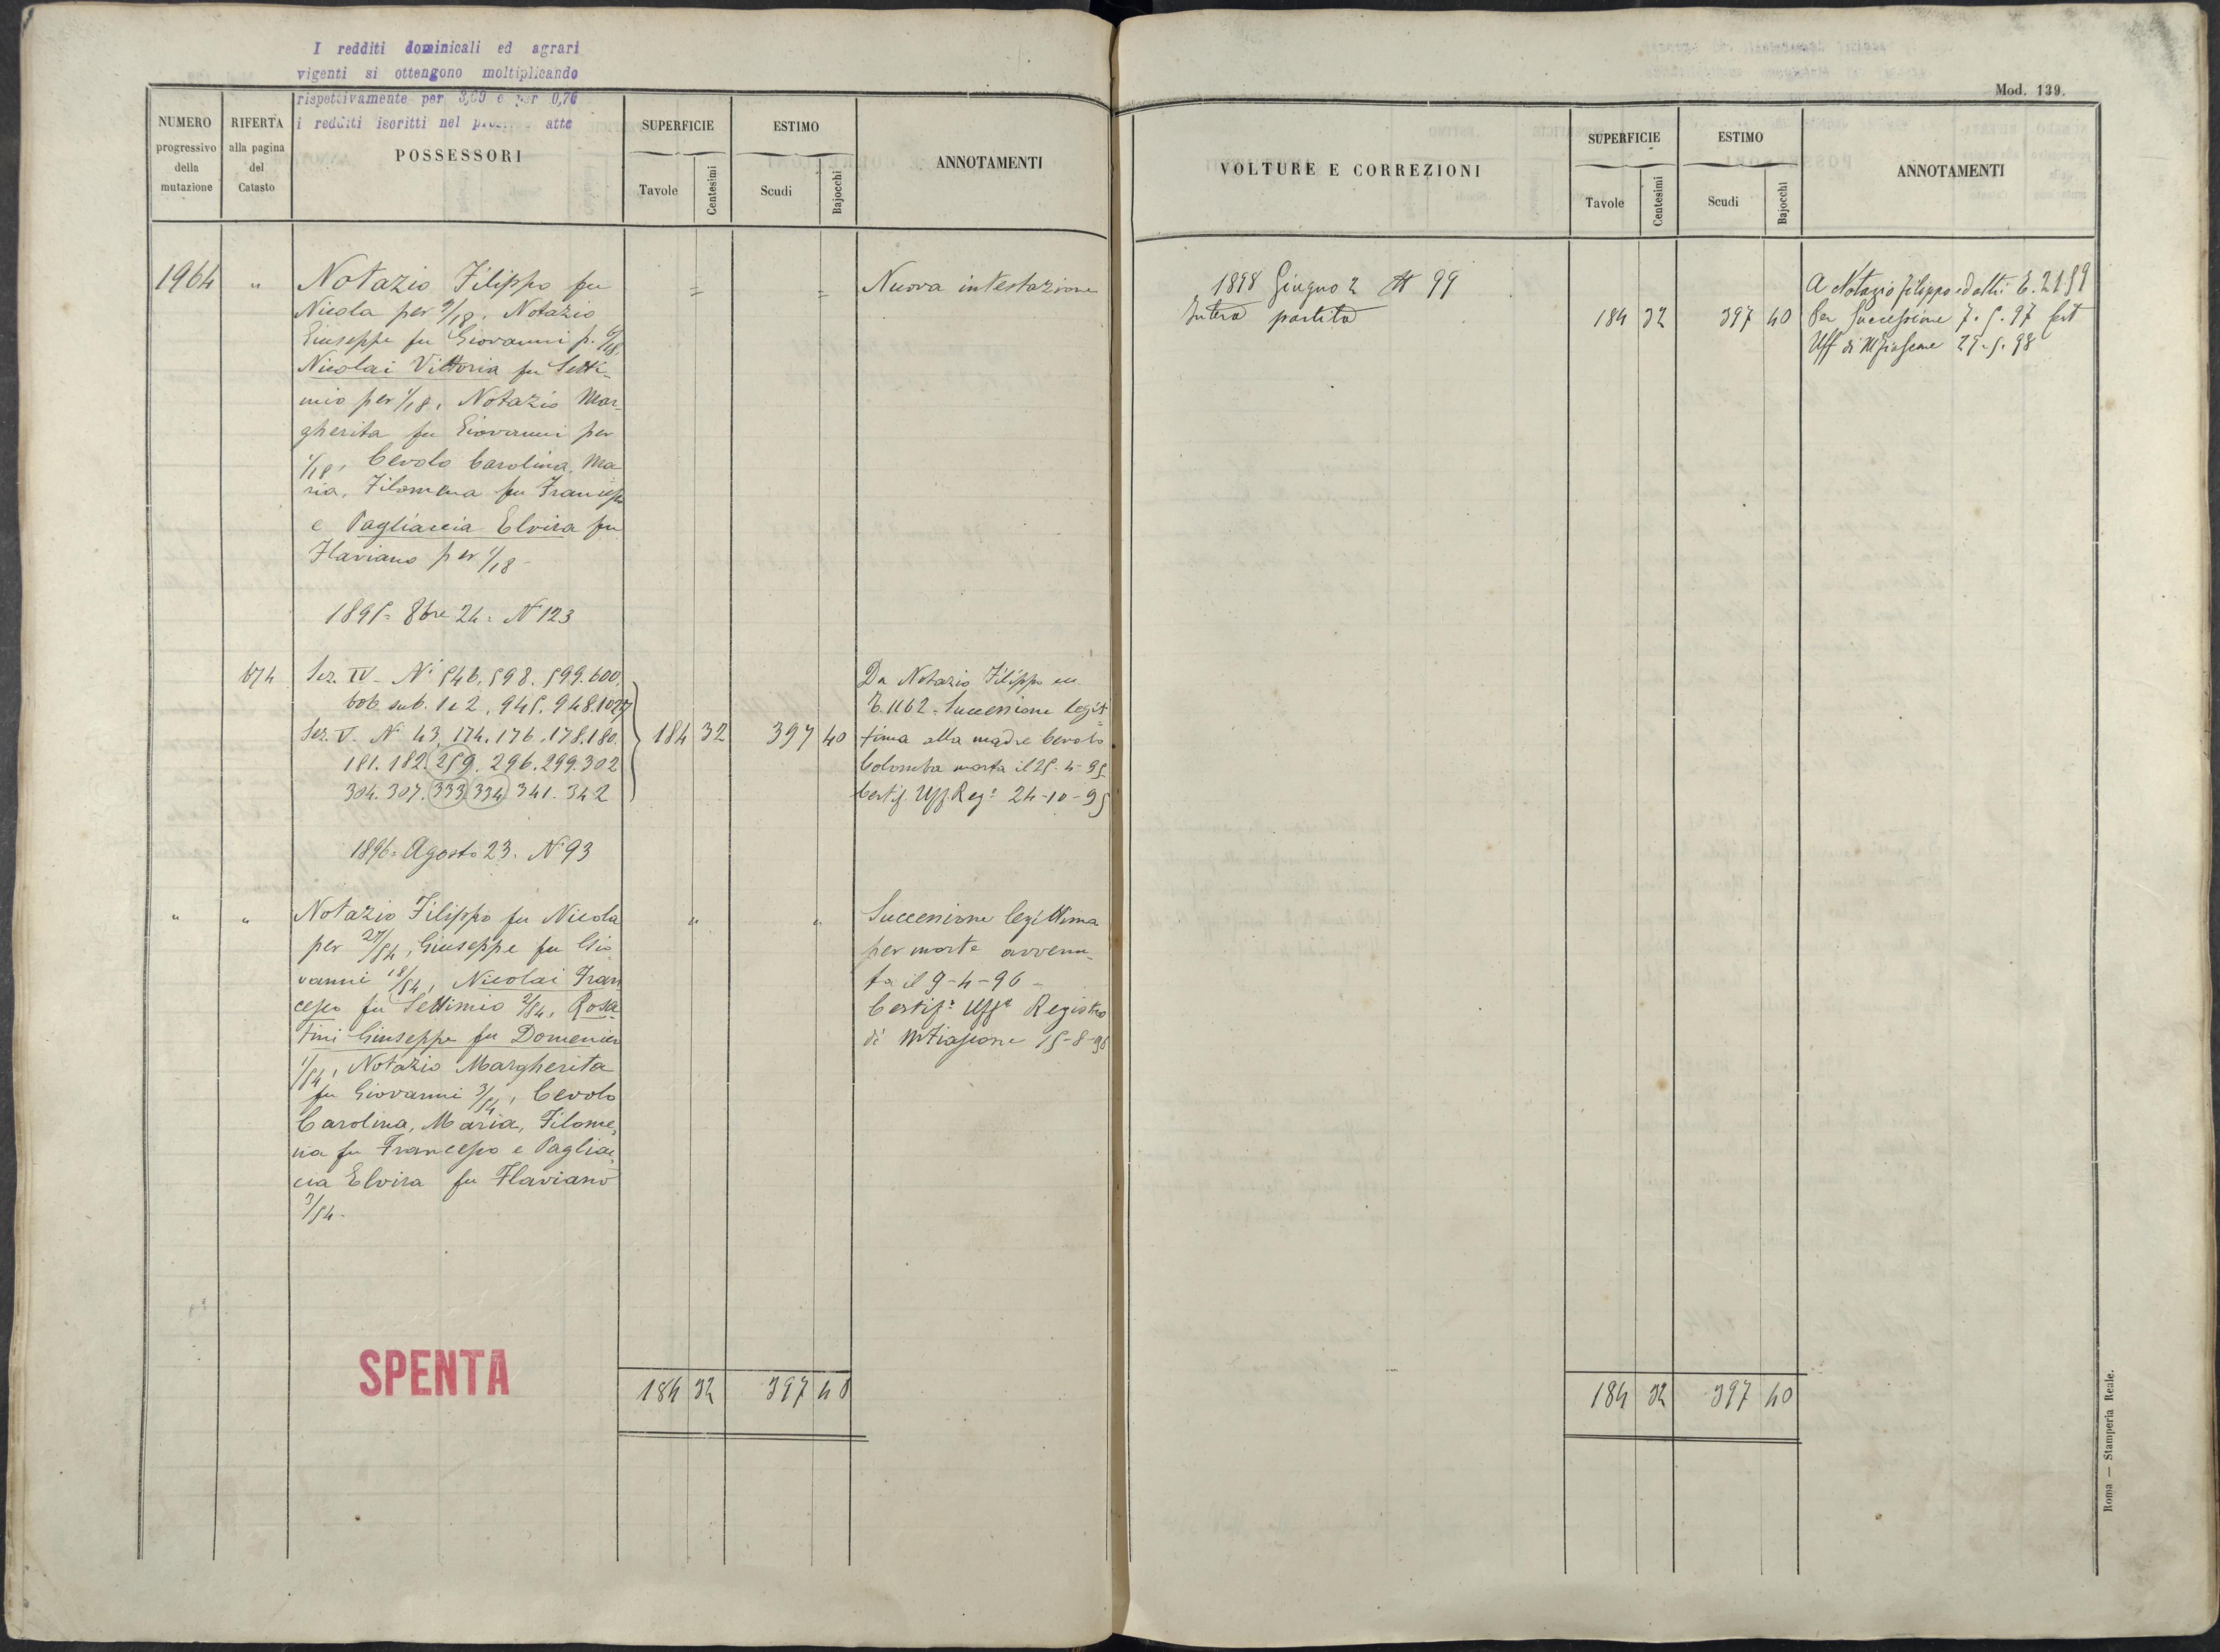 I redditi dominicali ed agrari
vigenti si ottengono moltiplicando
rispettivamente per 3,60 e per 0,70
i redditi iscritti nel atto
NUMERO
progressivo
della
mutazione
RIFERTA
alla pagina
del
Catasto
POSSESSORI
SUPERFICIE
Tavole
Centesimi
ESTIMO
Scudi
Bajocchi
ANNOTAMENTI
1964 " Notazio Filippo fu = = Nuova intestazione
Nicola per 9/18, Notazio
Giuseppe fu Giovanni p. 6/18,
Nicolai Vittoria fu Setti-
mio per 1/18, Notazio Mar-
gherita fu Giovanni per
1/18, Cevolo Carolina, Ma
ria, Filomena fu Francesco
e Pagliaccia Elvira fu
Flaviano per 1/18-
1895= 8bre 24= N° 123
674 Sez. IV- Ni 546. 598. 599. 600. Da Notazio Filippo
606. sub. 1 e 2. 945. 948. 1027 E. 1162= Successione legit
Sez. V. Ni 43. 174. 176. 178. 180. 184 32 397 40 tima alla madre Cevolo
181. 182. 259. 296. 299. 302 Colomba morta il 25-4-95
304. 307. 333. 334. 341. 342 Certif. Uff. Reg° 24-10-95
1896= Agosto 23. N° 93
" " Notazio Filippo fu Nicola " " Successione legittima
per 27/54, Giuseppe fu Gio per morte avvenu-
vanni 18/54, Nicolai Fran ta il 9-4-96-
cesco fu Settimio 2/54, Rosa- Certif° Uff° Registro
tini Giuseppe fu Domenico di
1/54, Notazio Margherita
fu Giovanni 3/54, Cevolo
Carolina, Maria, Filome-
na fu Francesco e Pagliac-
cia Elvira fu Flaviano
3/54-
SPENTA
184 32 397 40
Mod. 139.
VOLTURE E CORREZIONI
SUPERFICIE
Tavole
Centesimi
ESTIMO
Scudi
Bajocchi
ANNOTAMENTI
1898 Giugno 2 N 99 A Notazio Filippo ed altri E. 2189
Intera partita 184 32 397 40 Per Successione 7. 5. 97
Uff di 29. 5. 98
184 32 397 40
Roma — Stamperia Reale.